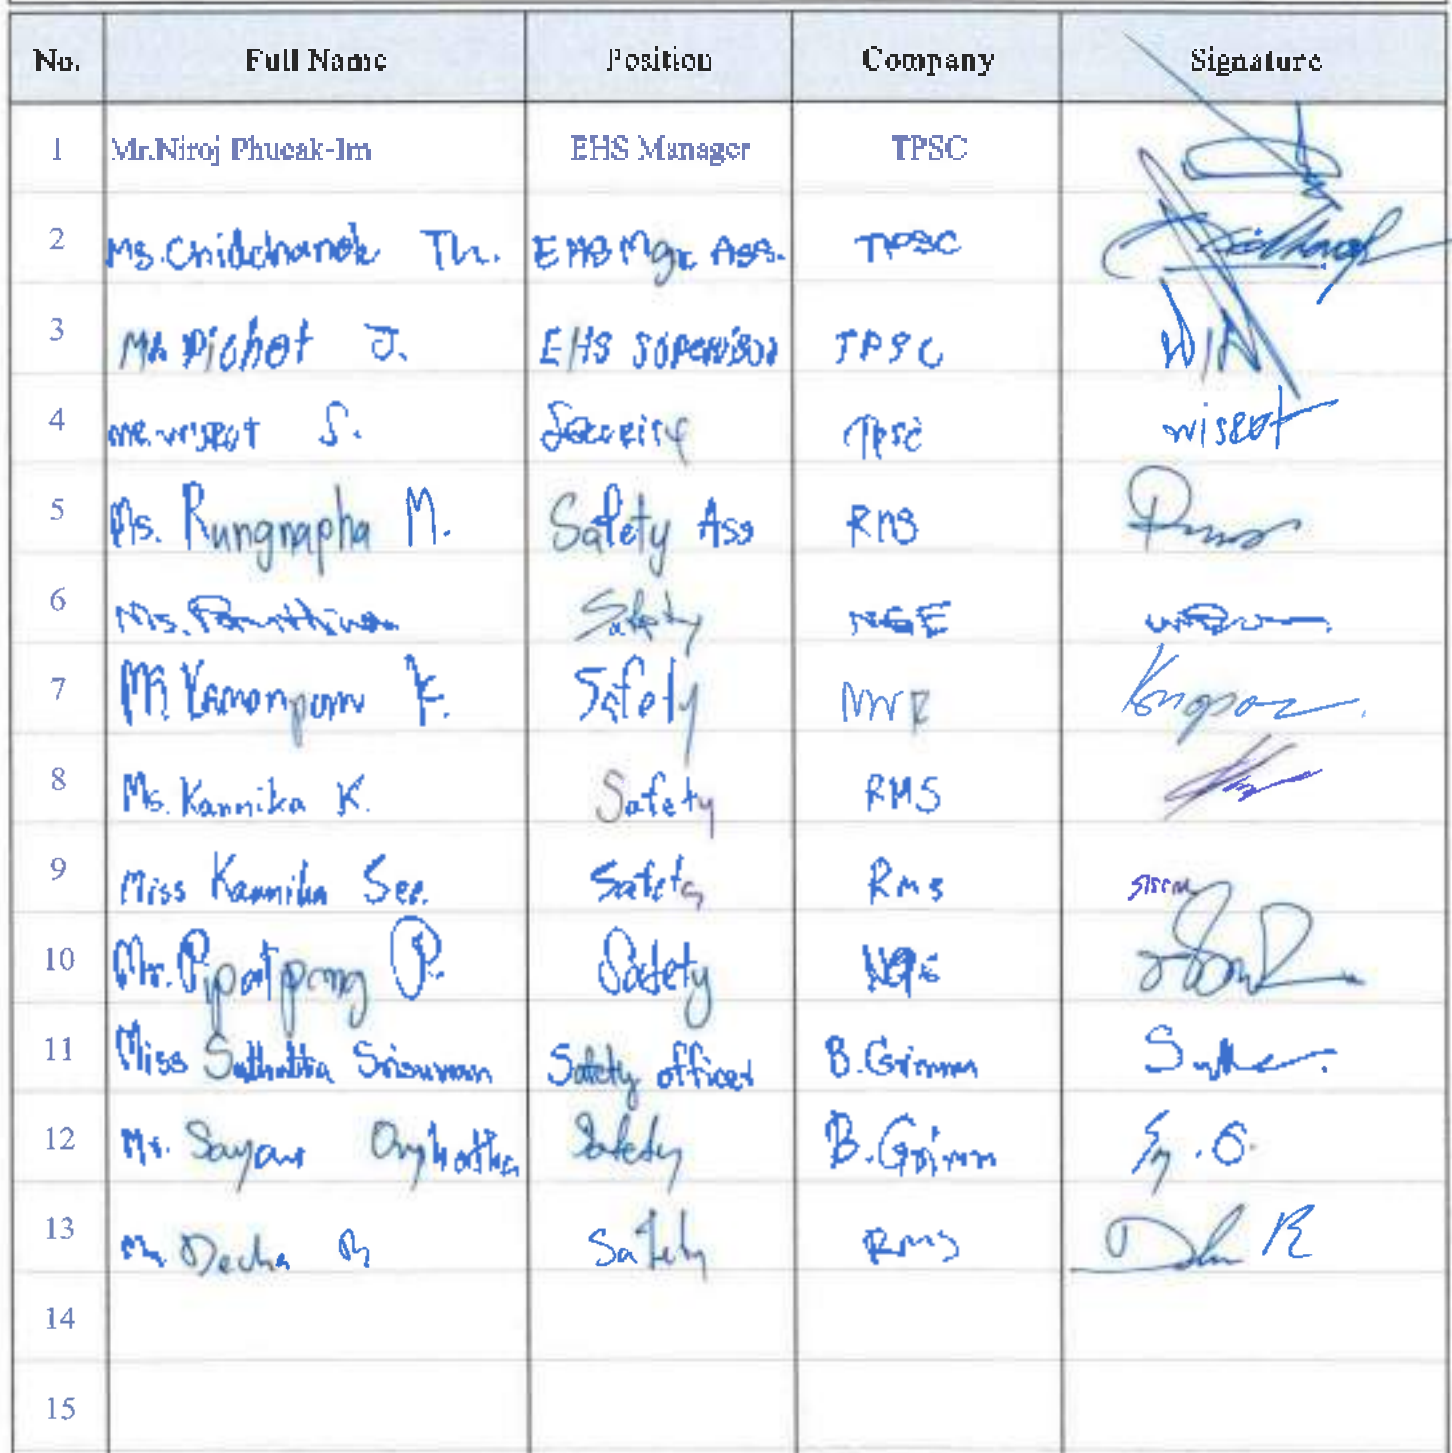 No. Full Name Position Company Signature
1 Mr.Niroj Phueak-Im EHS Manager TPSC
2 Ms. Chidchanok Th. EHS Mgr Ass. TPSC
3 Mr Pichet J. EHS Supervisor TPSC
4 Mr. Wisect S. Security TPSC wisect
5 Ms. Rungnapha M. Safety Ass RMS
6 Ms. Safety NGE
7 Safety
8 Ms. Kannika K. Safety RMS
9 Miss Kannika See. Safety Rms
10 Mr. Pipatpong P. Safety
11 Miss Srisuwan Safety officer B.Grimm
12 Mr. Sayan Safety B.Grimm
13 Mr. Decha R Safety Rms
14
15